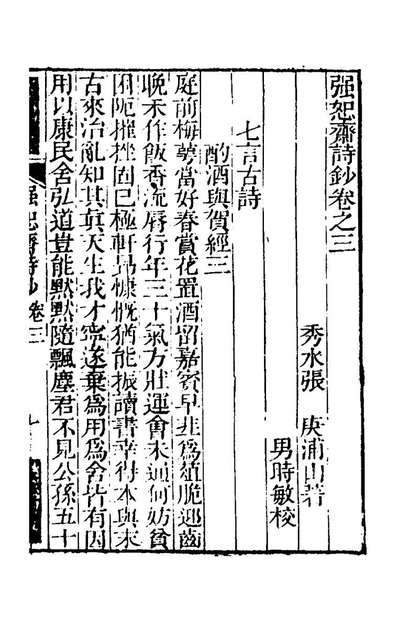 强恕齋詩鈔卷之三
秀水張 庚浦山著
男時敏校
七言古詩
酌酒與賀經三
庭前梅萼當好春賞花置酒留嘉賓早韭爲葅脆迎齒
晚禾作飯香流脣行年三十氣方壯運會未通何妨貧
困阨摧挫固已極軒昂慷慨猶能振讀書幸得本與末
古來治亂知其眞天生我才寧遂棄爲用爲舍皆有因
用以康民舍弘道豈能默默隨飄塵君不見公孫五十
强恕齋詩鈔 卷三